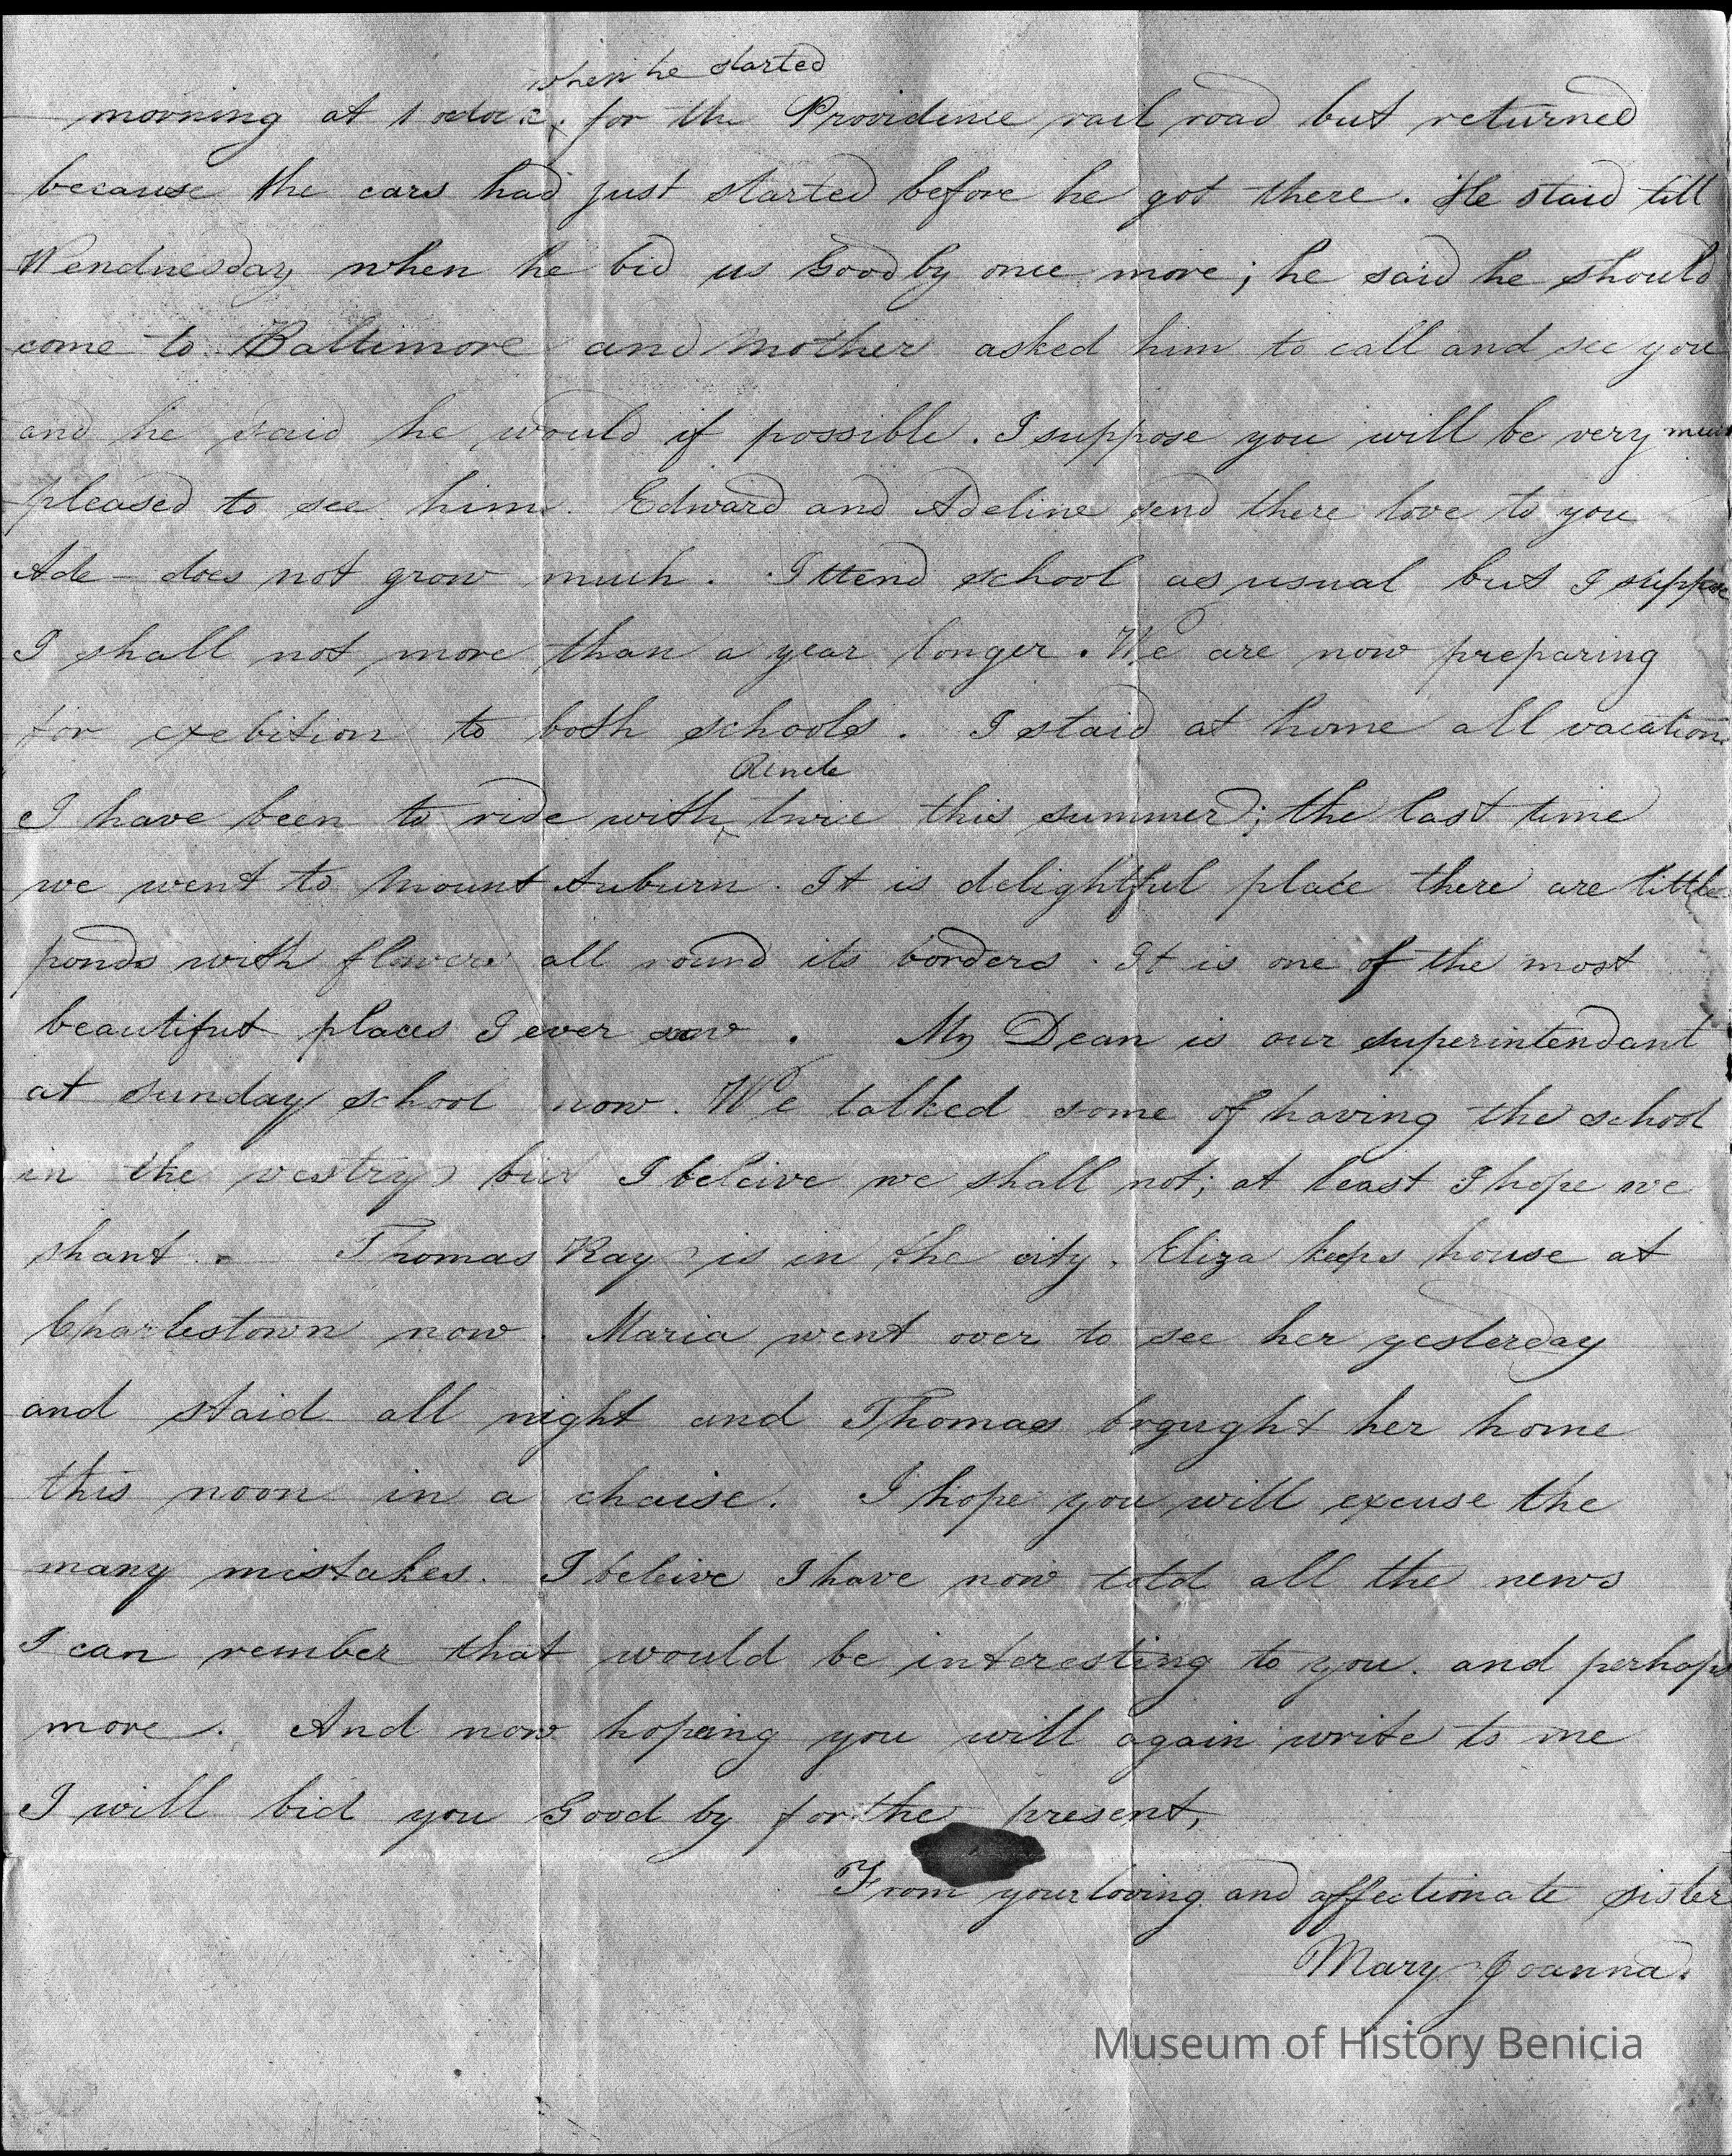 when he started
morning at 1 oclock. for the Providence rail road but returned
because the cars had just started before he got there. He staid till
Wendnesday when he bid us Good by once more; he said he should
come to Baltimore and Mother asked him to call and see you
and he said he would if possible. I suppose you will be very much
pleased to see him. Edward and Adeline send there love to you
Ade - does not grow much. I ttend school as usual but I suppose
I shall not more than a year longer. We are now preparing
for exebition to both schools. I staid at home all vacation
Uncle
I have been to ride with twice this summer; the last time
we went to Mount Auburn. It is delightful place there are little
ponds with flowers all round its borders. It is one of the most
beautiful places I ever saw. My Dean is our superintendant
at sunday school now. We talked some of having the school
in the vestry but I beleive we shall not; at least I hope we
shant. Thomas Ray is in the city. Eliza keeps house at
Charlestown now. Maria went over to see her yesterday
and staid all night and Thomas brought her home
this noon in a chaise. I hope you will excuse the
many mistakes. I beleive I have now told all the news
I can rember that would be interesting to you. and perhaps
more. And now hopeing you will again write to me
I will bid you Good by for the present,
From your loving and affectionate sister
Mary Joanna.
Museum of History Benicia